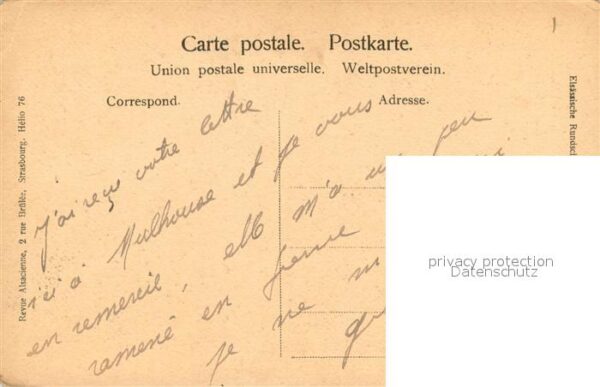 Carte postale. Postkarte.
Union postale universelle. Weltpostverein.
Correspond. Adresse.
Revue Alsacienne, 2 rue Brûlée, Strasbourg. Hélio 76
Elsässische Rundsch
j'ai reçu votre lettre
ici à Mulhouse et je vous
en remercie, elle m'a un peu
ramené en
je ne m
privacy protection
Datenschutz